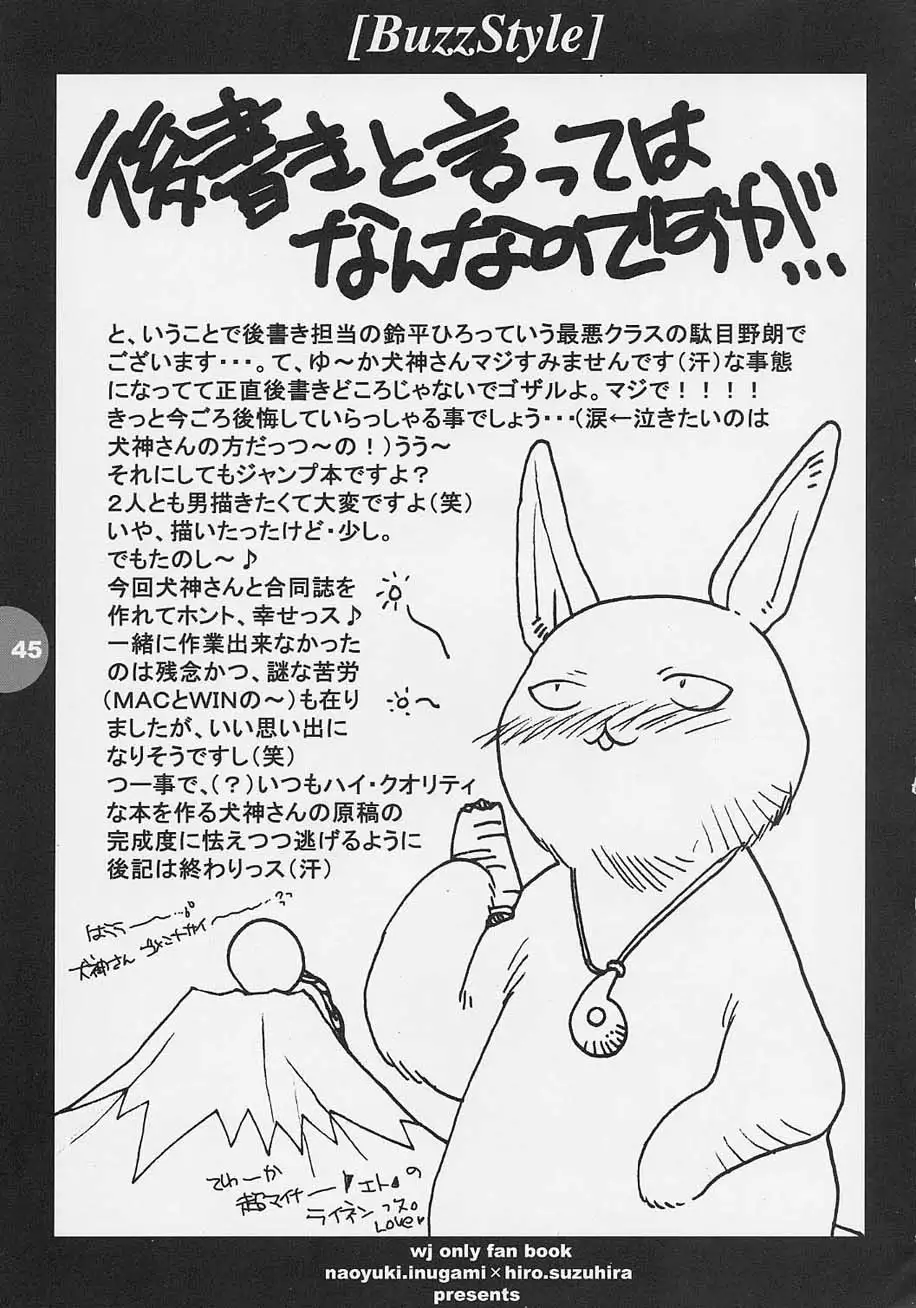 [BuzzStyle]
後書きと言っては
なんなのですが…
と、いうことで後書き担当の鈴平ひろっていう最悪クラスの駄目野朗で
ございます・・・。て、ゆ～か犬神さんマジすみませんです（汗）な事態
になってて正直後書きどころじゃないでゴザルよ。マジで！！！！
きっと今ごろ後悔していらっしゃる事でしょう・・・（涙←泣きたいのは
犬神さんの方だっつ～の！）うう～
それにしてもジャンプ本ですよ？
２人とも男描きたくて大変ですよ（笑）
いや、描いたったけど・少し。
でもたのし～♪
今回犬神さんと合同誌を
作れてホント、幸せっス♪
一緒に作業出来なかった
のは残念かつ、謎な苦労
（MACとWINの～）も在り
ましたが、いい思い出に
なりそうですし（笑）
つー事で、（？）いつもハイ・クオリティ
な本を作る犬神さんの原稿の
完成度に怯えつつ逃げるように
後記は終わりっス（汗）
45
犬神さん
てゆーか
超マイナー
エト
の
ライネン
っス。
Love♥
wj only fan book
naoyuki.inugami×hiro.suzuhira
presents